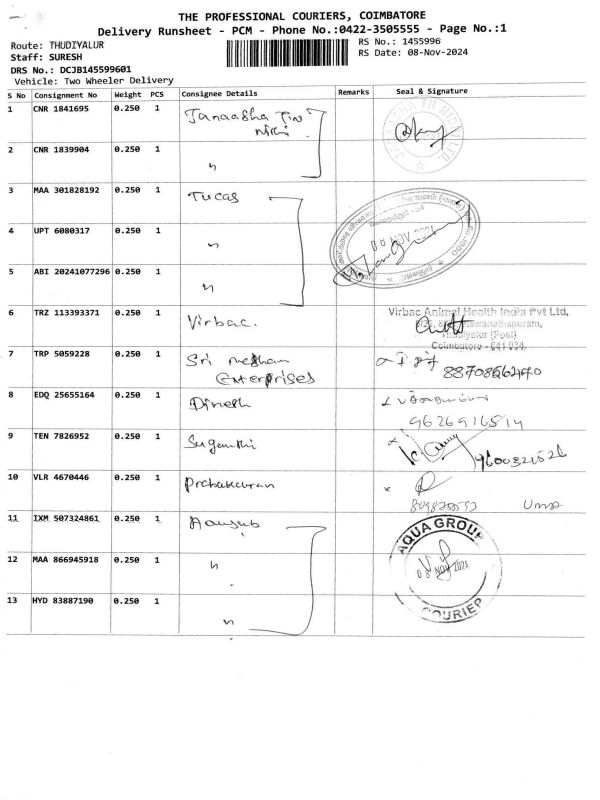 THE PROFESSIONAL COURIERS, COIMBATORE
Delivery Runsheet - PCM - Phone No.:0422-3505555 - Page No.:1
Route: THUDIYALUR
RS No.: 1455996
Staff: SURESH
RS Date: 08-Nov-2024
DRS No.: DCJB145599601
Vehicle: Two Wheeler Delivery
S No Consignment No Weight PCS Consignee Details Remarks Seal & Signature
1 CNR 1841695 0.250 1
2 CNR 1839904 0.250 1 "
3 MAA 301828192 0.250 1 Tucas
4 UPT 6080317 0.250 1 "
5 ABI 20241077296 0.250 1 "
6 TRZ 113393371 0.250 1 Virbac. Virbac Animal Health India Pvt Ltd,
Coimbatore - 641 034.
7 TRP 5059228 0.250 1 Sri
Enterprises
8 EDQ 25655164 0.250 1 Dinesh
9626916514
9 TEN 7826952 0.250 1
10 VLR 4670446 0.250 1 Prabakaran
11 IXM 507324861 0.250 1 AQUA GROUP
12 MAA 866945918 0.250 1 " 08 NOV 2024
13 HYD 83887190 0.250 1 " COURIER